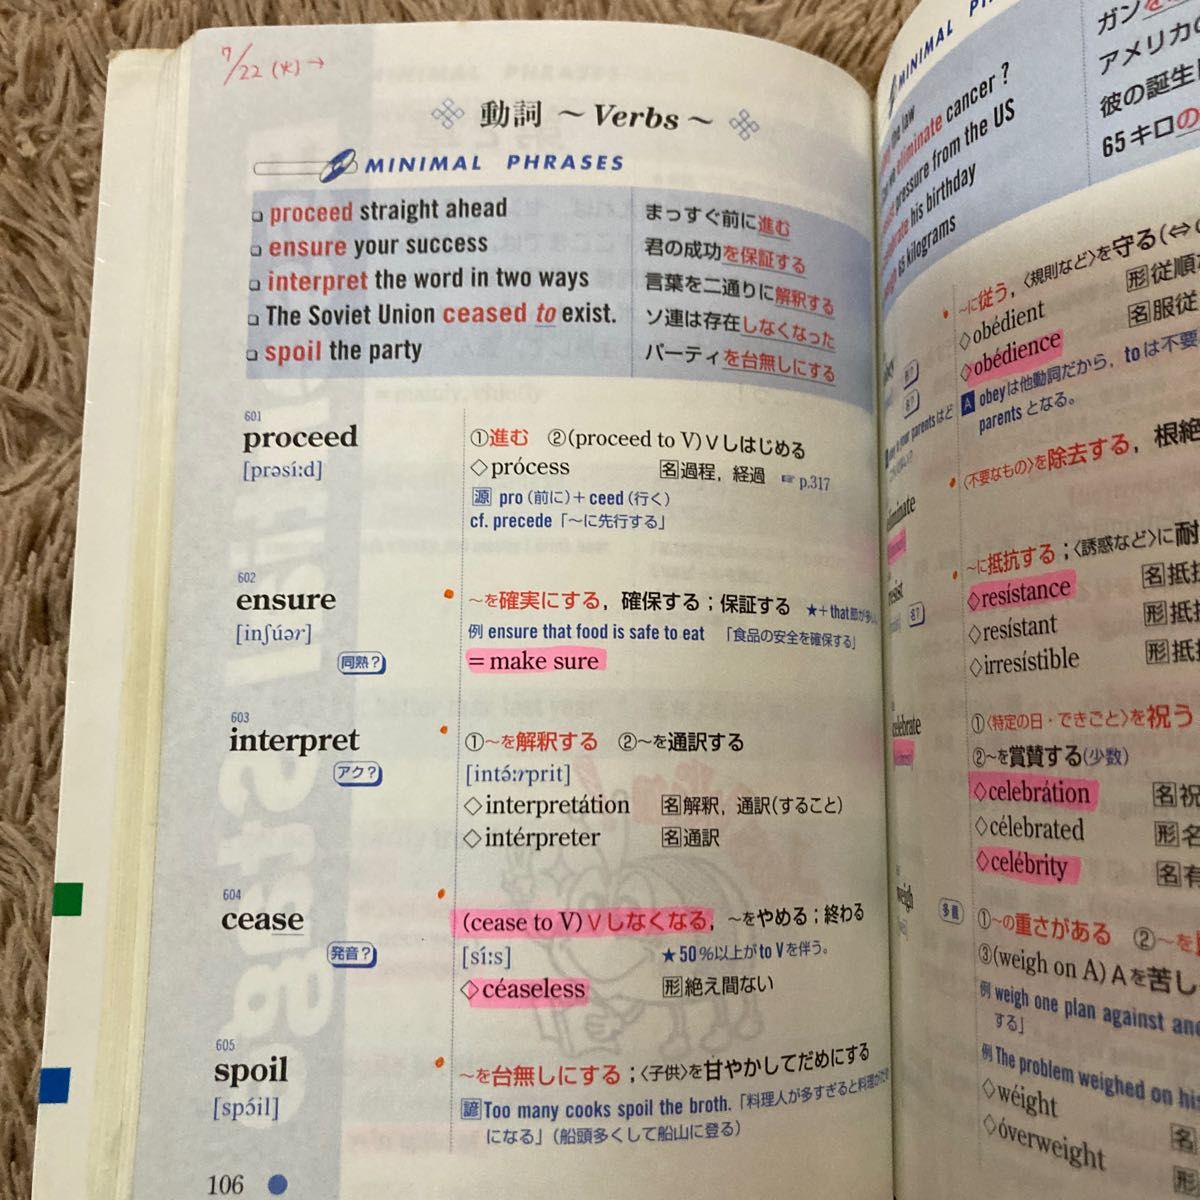 7/22(火)→
動詞 ~Verbs~
MINIMAL PHRASES
proceed straight ahead まっすぐ前に進む
ensure your success 君の成功を保証する
interpret the word in two ways 言葉を二通りに解釈する
The Soviet Union ceased to exist. ソ連は存在しなくなった
spoil the party パーティを台無しにする
601
proceed ①進む ②(proceed to V) Vしはじめる
[prəsíːd] ◇prócess 名過程, 経過 ☞ p.317
源 pro (前に)+ceed (行く)
cf. precede「~に先行する」
602
ensure ~を確実にする, 確保する;保証する ★+that節が多い
[inʃúər] 例 ensure that food is safe to eat 「食品の安全を確保する」
同熟? = make sure
603
interpret ①~を解釈する ②~を通訳する
アク? [intə́ːrprit]
◇interpretátion 名解釈, 通訳(すること)
◇intérpreter 名通訳
604
cease (cease to V) Vしなくなる, ~をやめる;終わる
発音? [síːs] ★50%以上がto Vを伴う。
◇céaseless 形絶え間ない
605
spoil ~を台無しにする;〈子供〉を甘やかしてだめにする
[spɔ́il] 諺 Too many cooks spoil the broth.「料理人が多すぎると料理が
になる」(船頭多くして船山に登る)
106
MINIMAL
the law
eliminate cancer?
pressure from the US
his birthday
65 kilograms
ガン
アメリカの
彼の誕生
65キロの
~に従う,〈規則など〉を守る(⇔
◇obédient 形従順
◇obédience 名服従
A obeyは他動詞だから, toは不要
parents となる。
〈不要なもの〉を除去する, 根絶
~に抵抗する;〈誘惑など〉に耐
◇resístance 名抵抗
◇resístant 形抵抗
◇irresístible 形抵抗
①〈特定の日・できごと〉を祝う
②~を賞賛する(少数)
◇celebrátion 名祝
◇célebrated 形名
◇celébrity 名有
weigh 多義 ①~の重さがある ②~を
③(weigh on A) Aを苦し
例 weigh one plan against
する」
例 The problem weighed on his
◇wéight 名
◇óverweight 形